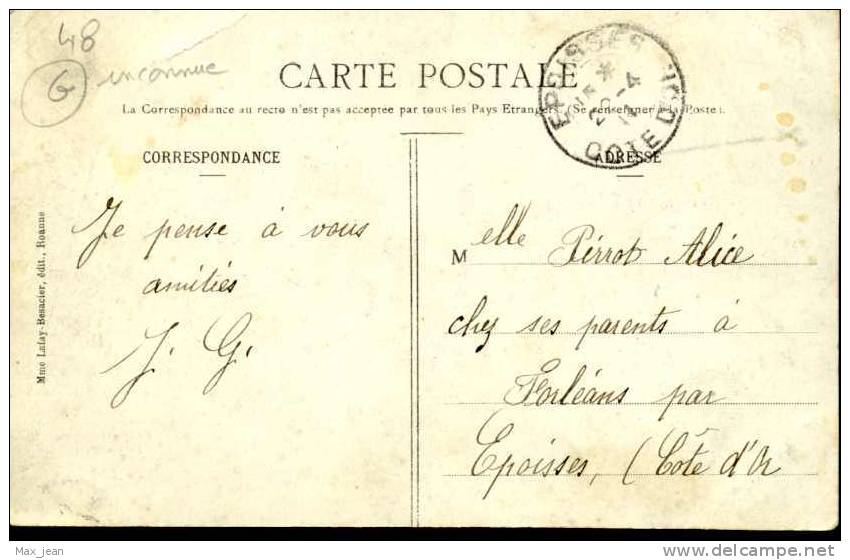 48
G inconnue
CARTE POSTALE
La Correspondance au recto n'est pas acceptée par tous les Pays Etrangers. (Se renseigner à la Poste).
EPOISSES
20-4
COTE D'OR
CORRESPONDANCE
ADRESSE
Je pense à vous
amitiés
J. G.
Melle Pérrot Alice
chez ses parents à
Forléans par
Epoisses, (Côte d'Or
Mme Lafay-Besacier, édit., Roanne
Max_jean
www.delcampe.net